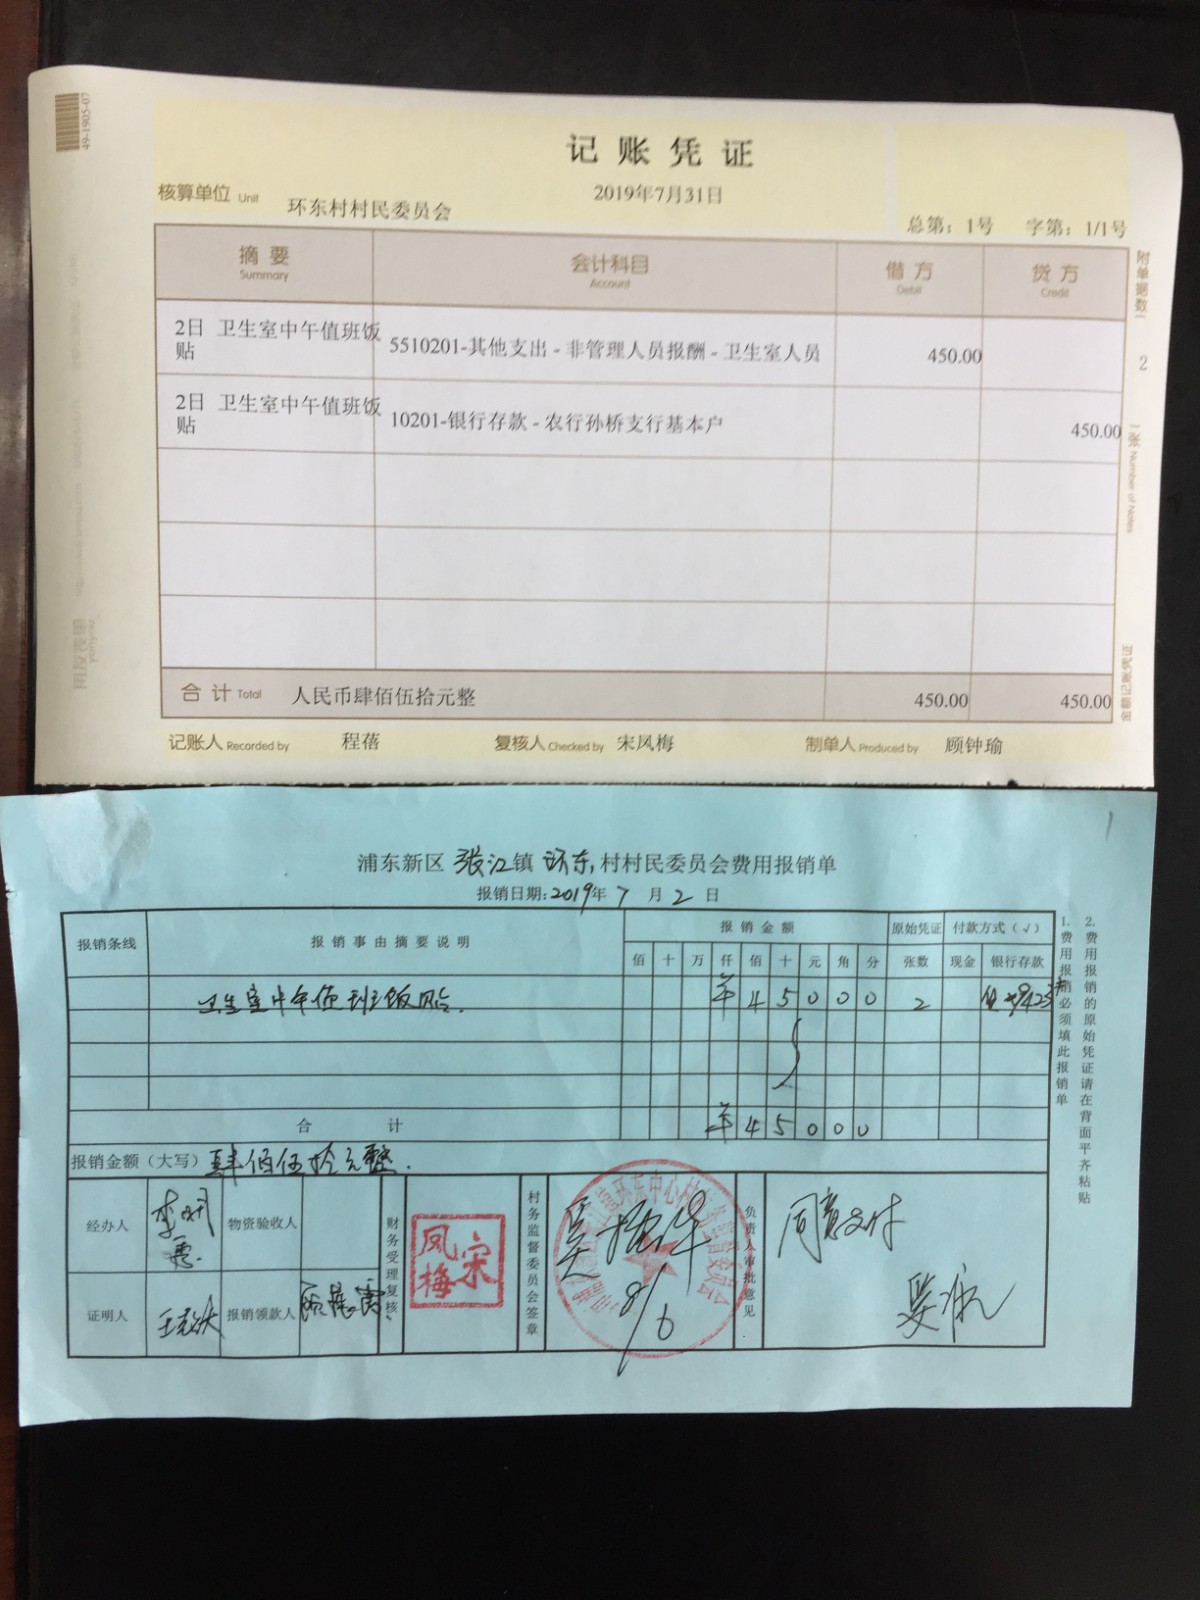 49-1905-07
记账凭证
2019年7月31日
核算单位 Unit 环东村村民委员会
总第：1号 字第：1/1号
摘要 会计科目 借方 贷方
Summary Account Debit Credit
2日 卫生室中午值班饭贴 5510201-其他支出 - 非管理人员报酬 - 卫生室人员 450.00
2日 卫生室中午值班饭贴 10201-银行存款 - 农行孙桥支行基本户 450.00
合计 Total 人民币肆佰伍拾元整 450.00 450.00
记账人 Recorded by 程蓓 复核人 Checked by 宋凤梅 制单人 Produced by 顾钟瑜
附单据数 2 张 Number of Notes
金额记账凭证
1
浦东新区 张江 镇 环东 村村民委员会费用报销单
报销日期：2019年 7 月 2 日
报销条线 报销事由摘要说明 报销金额 原始凭证 付款方式（√）
佰 十 万 仟 佰 十 元 角 分 张数 现金 银行存款
卫生室中午值班饭贴. ¥ 4 5 0 0 0 2
合计 ¥ 4 5 0 0 0
报销金额（大写） 肆佰伍拾元整.
经办人 物资验收人
证明人 报销领款人
财务受理复核：
宋凤梅
村务监督委员会签章
吴 华
8/6
负责人审批意见
同意支付
1. 费用报销必须填此报销单
2. 费用报销的原始凭证请在背面平齐粘贴